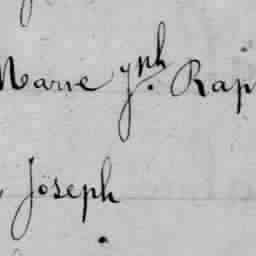 Marie Jph. Rap
Joseph